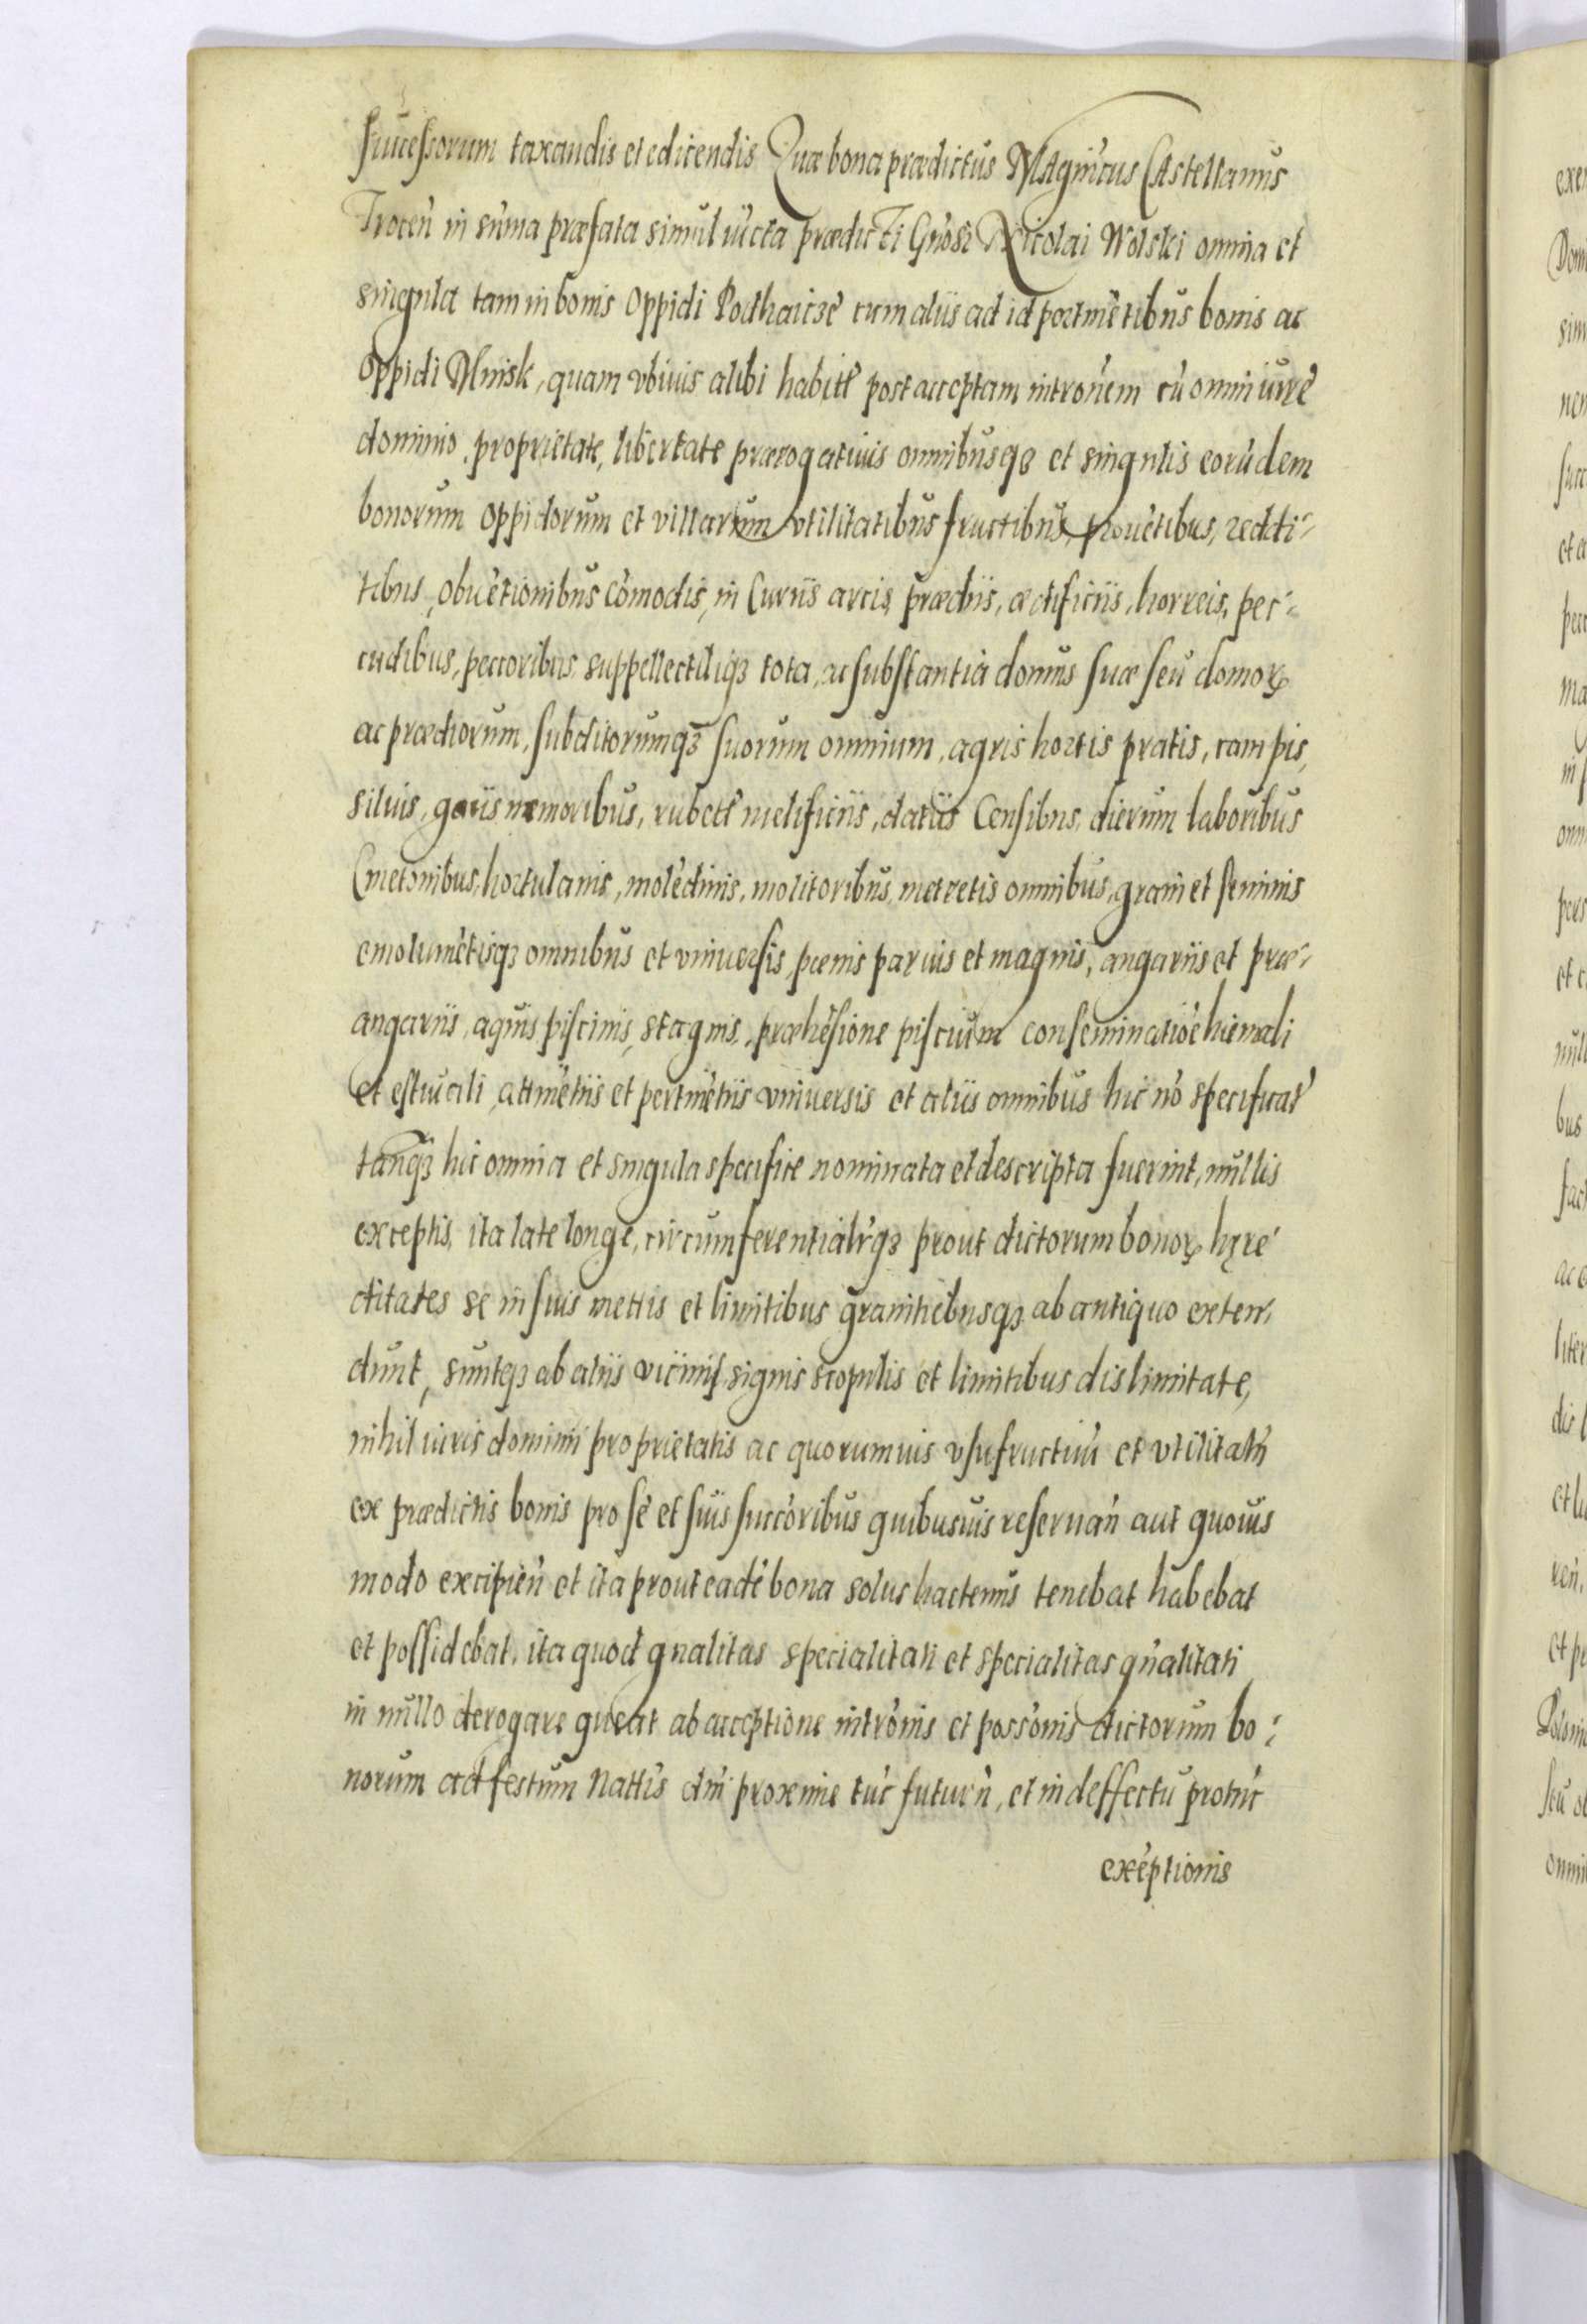 successorum taxandis et edicendis Quæ bona prædictus Magnicus Castellanus
Trocen̄ in sum̄a præfata simul iūcta prædicti Gn̄osi Nicolai Wolski omnia et
singula tam in bonis Oppidi Podhaicze cum aliis ad id pertinētibus bonis ac
Oppidi Minsk, quam vbiuis alibi habitis post acceptam intron̄em cū omni iure
dominio proprietate, libertate prærogatiuis omnibusqȝ et singulis eorūdem
bonorum oppidorum et villarum vtilitatibus fructibus, prouētibus, reddi-
tibus, obuētionibus cōmodis, in Curiis arcis, prædiis, ædificiis, horreis, pec-
cudibus, peccoribus, suppellectiliqȝ tota, ac substantia domus suæ seu domoꝝ
ac prædiorum, subditorumqȝ suorum omnium, agris hortis pratis, campis,
siluis, gaiis nemoribus, rubetis melificiis, datiis Censibus, dierum laboribus
Cmetonibus, hortulanis, molēdinis, molitoribus, metretis omnibus, grani et seminis
emolumētisqȝ omnibus et vniuersis, pœnis paruis et magnis, angariis et præ-
angariis, aquis piscinis, stagnis, præhēsione piscium conseminatiōe hiemali
et estiuali, attinētiis et pertinētiis vniuersis et aliis omnibus hic nō specificat'
tanqȝ hic omnia et singula specifice nominata et descripta fuerint, nullis
exceptis, ita late longe, circumferentialr̄qȝ prout dictorum bonoꝝ hęre-
ditates se in suis mettis et limitibus granitiebusqȝ ab antiquo exten-
dunt, suntqȝ ab aliis vicinis signis scopulis et limitibus dislimitate,
nihil iuris dominii proprietatis ac quorumuis vsufructuū et vtilitatū
ex prædictis bonis pro se et suis succōribus quibusuis reseruan̄ aut quouis
modo excipien̄ et ita prout eadē bona solus hactenus tenebat habebat
et possidebat, ita quod gnalitas specialitati et specialitas gn̄alitati
in nullo derogare queat ab acceptione intrōnis et possōnis dictorum bo-
norum ad festum Nattis dn̄i proxime tūc futurū, et in deffectu protūc
exēptionis